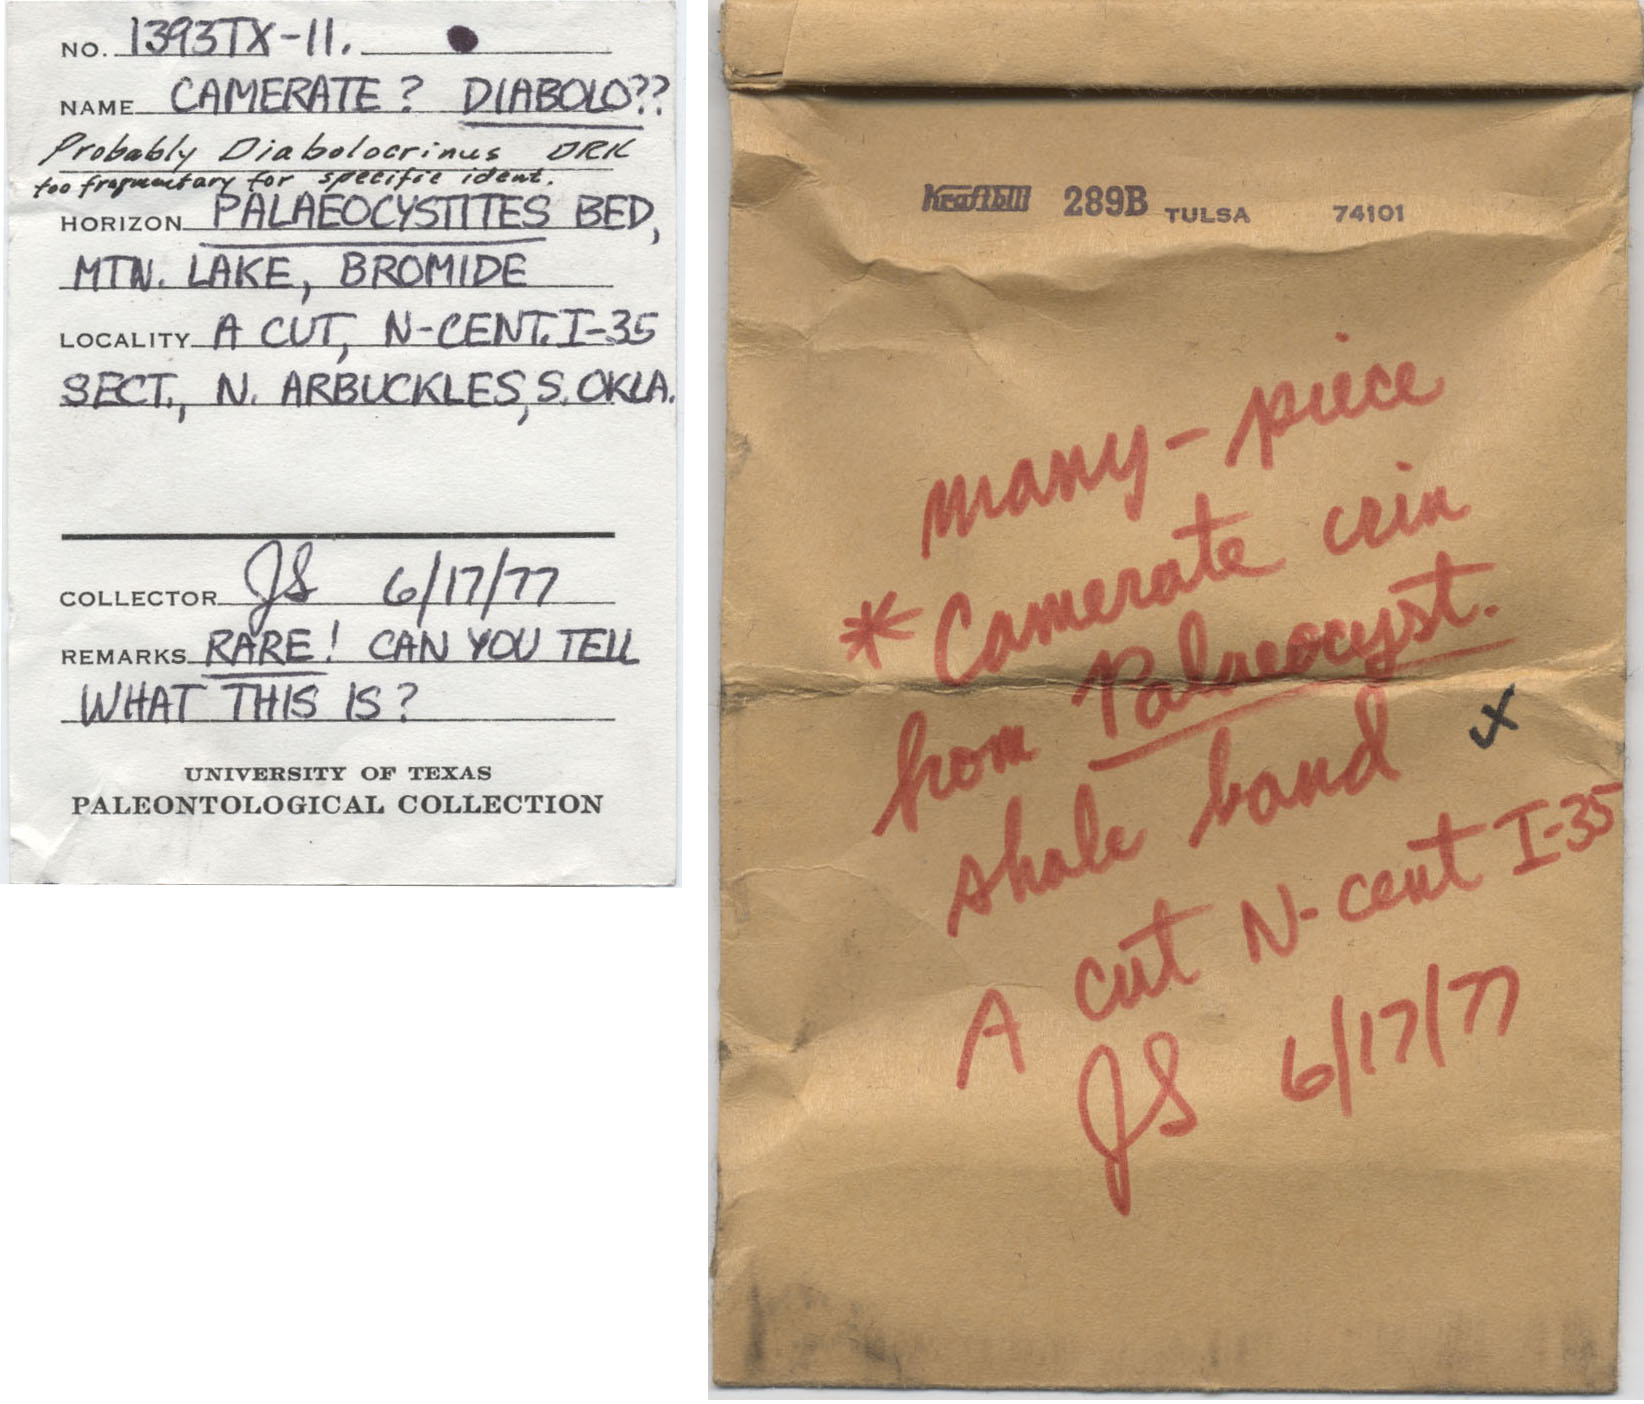 NO. 1393TX-11.
NAME CAMERATE? DIABOLO??
Probably Diabolocrinus DRK
too fragmentary for specific ident.
HORIZON PALAEOCYSTITES BED,
MTN. LAKE, BROMIDE
LOCALITY A CUT, N-CENT. I-35
SECT., N. ARBUCKLES, S. OKLA.
COLLECTOR JS 6/17/77
REMARKS RARE! CAN YOU TELL
WHAT THIS IS?
UNIVERSITY OF TEXAS
PALEONTOLOGICAL COLLECTION
289B TULSA 74101
many-piece
*Camerate crin
from Palaeocyst.
shale band x
A cut N-cent I-35
JS 6/17/77